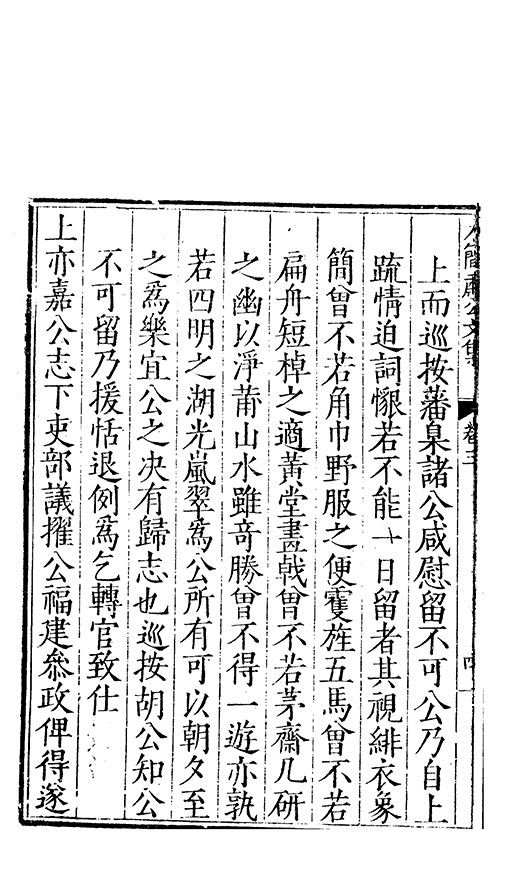 聞肅公文集 卷三
上而巡按藩臬諸公咸慰留不可公乃自上
疏情迫詞懇若不能一日留者其視緋衣象
簡曾不若角巾野服之便䨥旌五馬曾不若
扁舟短棹之適黃堂畫戟曾不若茅齋几硏
之幽以淨莆山水雖竒勝曾不得一遊亦孰
若四明之湖光嵐翠爲公所有可以朝夕至
之爲樂宜公之决有歸志也巡按胡公知公
不可留乃援恬退例爲乞轉官致仕
上亦嘉公志下吏部議擢公福建叅政俾得遂